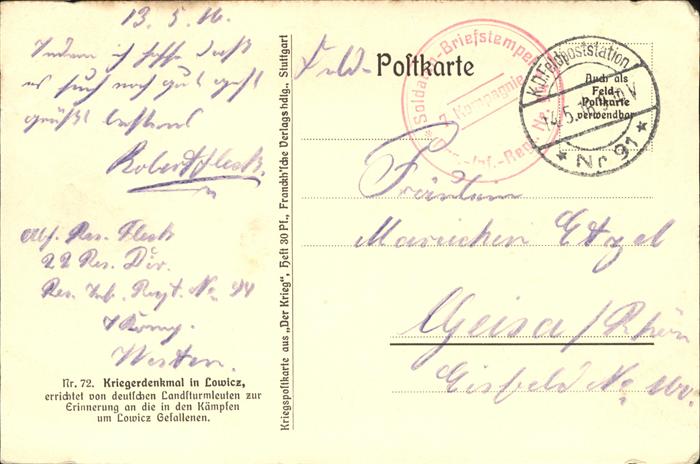 13.5.16
Indem ich hoffe daß
es Euch noch gut geht
grüßt bestens
Robert Fleck.
Abs. Res. Fleck
22 Res. Div.
Res. Inf. Regt. No 94
7 Komp.
Westen.
Nr. 72. Kriegerdenkmal in Lowicz,
errichtet von deutschen Landsturmleuten zur
Erinnerung an die in den Kämpfen
um Lowicz Gefallenen.
Kriegspostkarte aus „Der Krieg", Heft 30 Pf., Franckh'sche Verlagshdlg., Stuttgart
Feld-Postkarte
Soldaten-Briefstempel
7. Kompagnie
Inf.-Reg. No.
K.D. Feldpoststation
14.5.16 9-10 V
* Nr 91 *
Auch als
Feld-
Postkarte
verwendbar
Fräulein
Mariechen Etzel
Geisa/Rhön
No